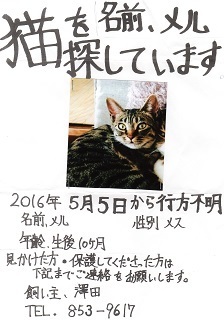 猫を名前、メル
探しています
2016年5月5日から行方不明
名前、メル 性別 メス
年齢、生後10ヶ月
見かけた方・保護してくださった方は
下記までご連絡をお願いします。
飼い主、澤田
TEL. 853-9617